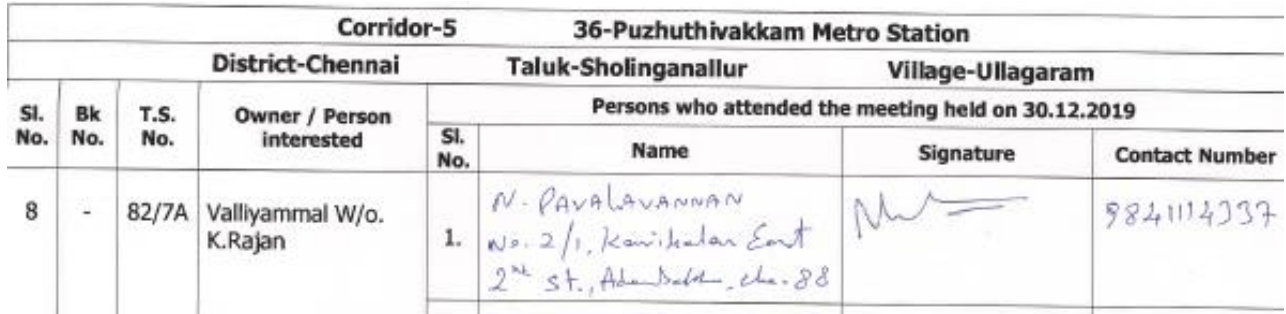 Corridor-5 36-Puzhuthivakkam Metro Station
District-Chennai Taluk-Sholinganallur Village-Ullagaram
Sl. No. Bk No. T.S. No. Owner / Person interested Persons who attended the meeting held on 30.12.2019
Sl. No. Name Signature Contact Number
8 - 82/7A Valliyammal W/o. K.Rajan 1. N. PAVALAVANNAN 9841114337
No. 2/1, East
2nd st., che-88